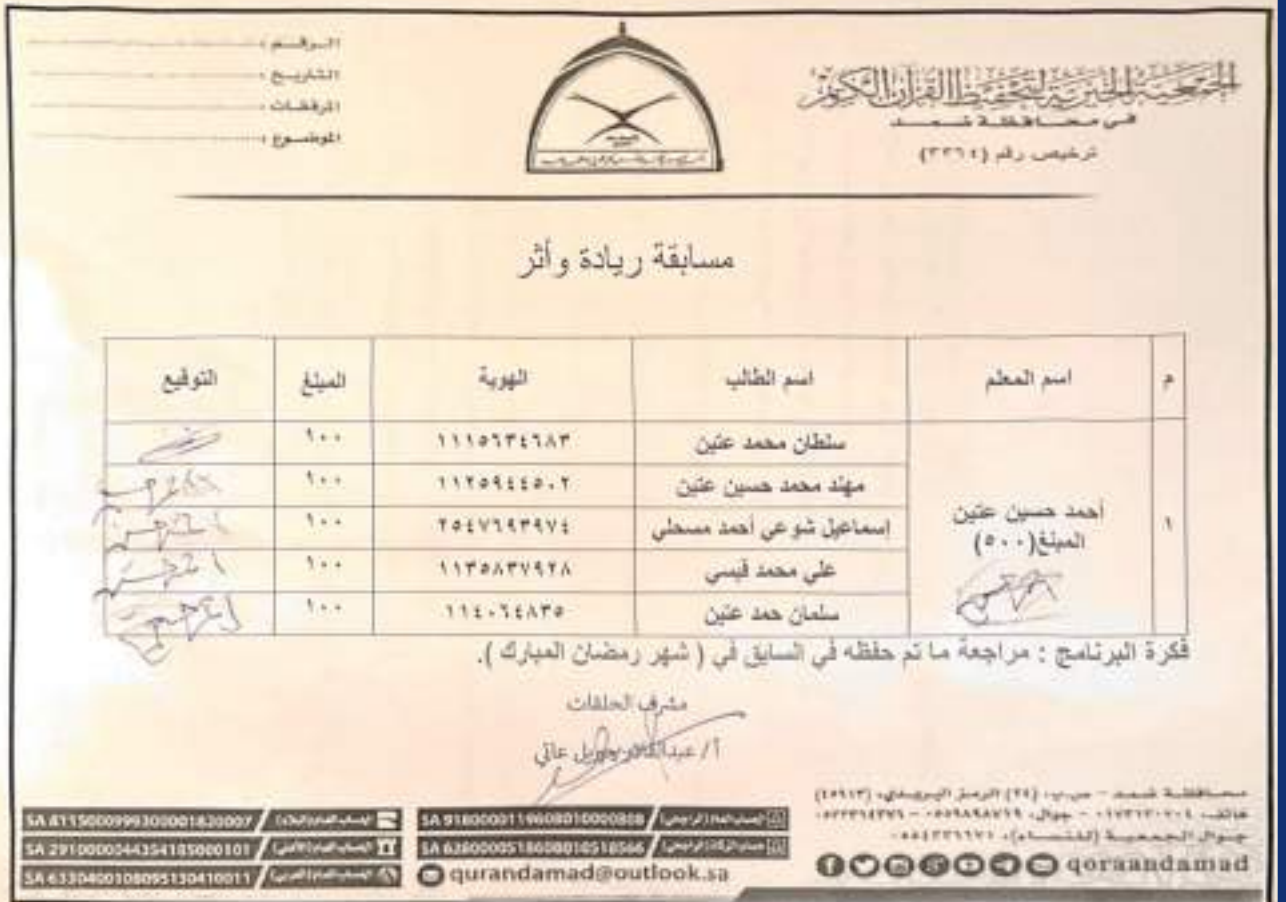 الجمعية الخيرية لتحفيظ القرآن الكريم
في محافظة ضمد
ترخيص رقم (٣٣٦٤)
الرقم :
التاريخ :
المرفقات :
الموضوع :
مسابقة ريادة وأثر
م اسم المعلم اسم الطالب الهوية المبلغ التوقيع
١ أحمد حسين عتين المبلغ(٥٠٠)
سلطان محمد عتين ١١١٥٦٣٤٦٨٣ ١٠٠
مهند محمد حسين عتين ١١٢٥٩٤٤٥٠٢ ١٠٠
إسماعيل شوعي أحمد مسحلي ٢٥٤٧٦٩٣٩٧٤ ١٠٠
علي محمد قيسي ١١٣٥٨٣٧٩٢٨ ١٠٠
سلمان حمد عتين ١١٤٠٦٤٨٣٥ ١٠٠
فكرة البرنامج : مراجعة ما تم حفظه في السابق في ( شهر رمضان المبارك ).
مشرف الحلقات
أ/ عاتي
محافظة ضمد - ص.ب: (٢٤) الرمز البريدي: (٤٥٩١٣)
هاتف: ٠١٧٣١٣٠٧٠٤ - جوال:
جوال الجمعية (للنساء):
qoraandamad
SA 9180000119608010000808
SA 6280000518608010518566
qurandamad@outlook.sa
SA 4115000999300001820007
SA 2910000044354185000101
SA 6330400108095130410011